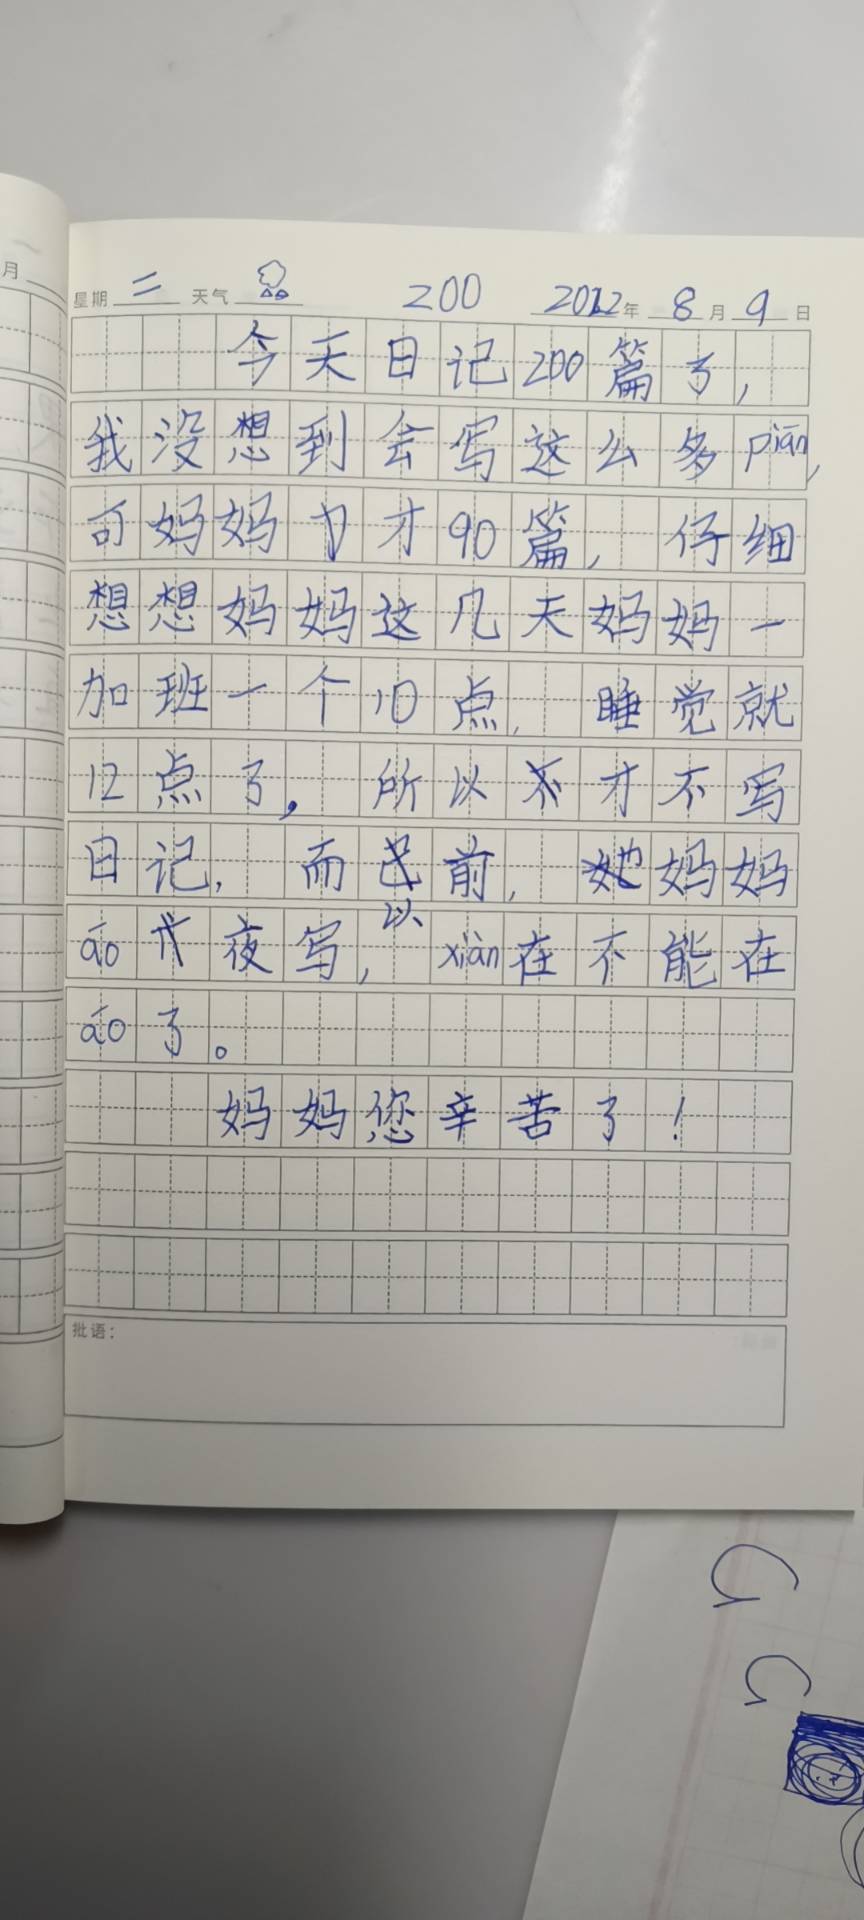 月
星期 二 天气 200 2022年 8月 9日
今天日记200篇了,
我没想到会写这么多piān,
可妈妈才90篇, 仔细
想想妈妈这几天妈妈一
加班一个10点, 睡觉就
12点了, 所以才不写
日记, 而以前, 妈妈
áo 夜写, xiàn在不能在
áo了。
妈妈您辛苦了!
批语: